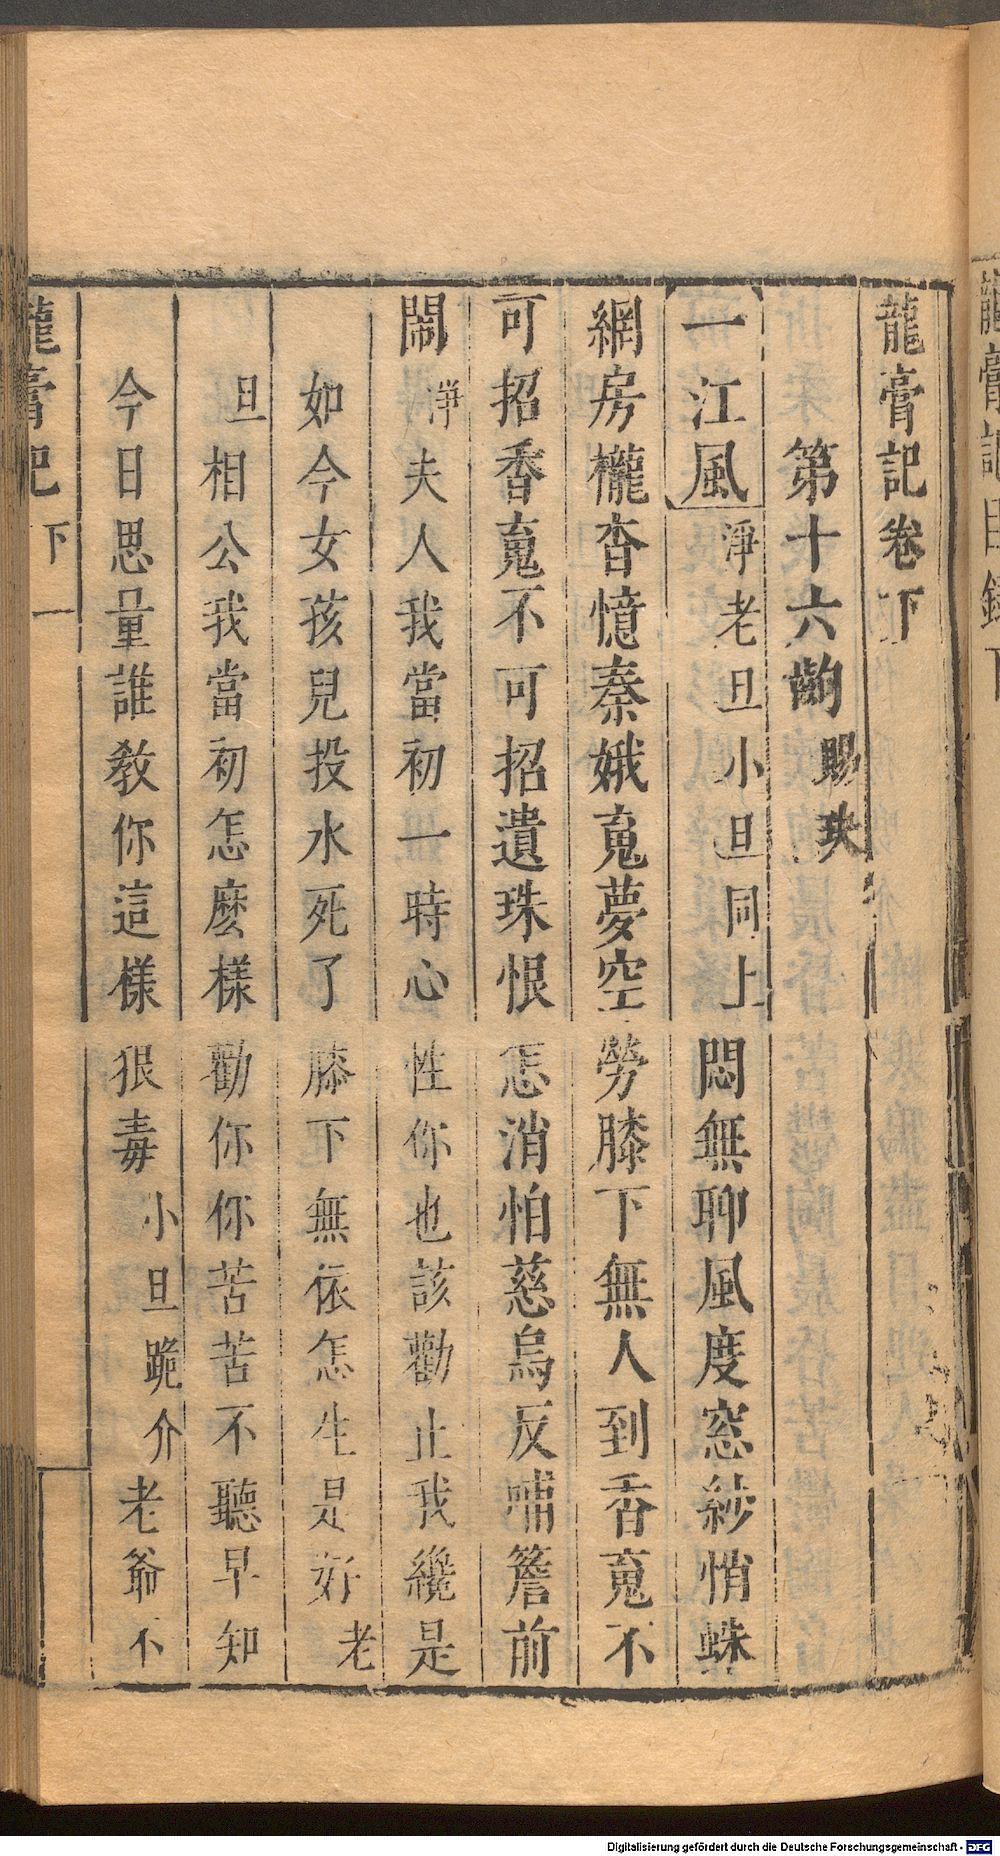 龍膏記卷下
第十六齣 賜玦
一江風 淨老旦小旦同上 悶無聊風度窓紗悄蛛
網房櫳杳憶秦娥䰟夢空勞膝下無人到香䰟不
可招香䰟不可招遺珠恨怎消怕慈烏反哺簷前
鬧 淨 夫人我當初一時心性你也該勸止我纔是
如今女孩兒投水死了膝下無依怎生是好 老
旦 相公我當初怎麽樣勸你你苦苦不聽早知
今日思量誰敎你這樣狠毒 小旦跪介 老爺不
龍膏記 下 一
龍膏記目錄下
Digitalisierung gefördert durch die Deutsche Forschungsgemeinschaft - DFG